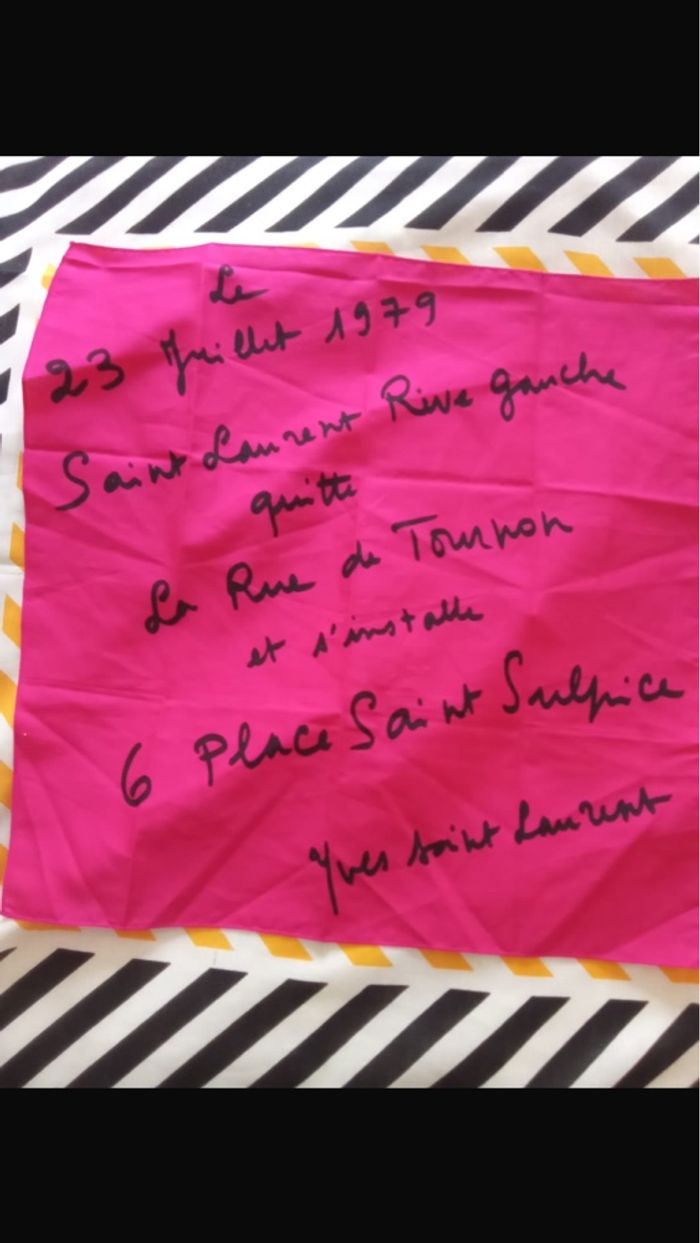 Le
23 Juillet 1979
Saint Laurent Rive gauche
quitte
La Rue de Tournon
et s'installe
6 Place Saint Sulpice
Yves saint Laurent